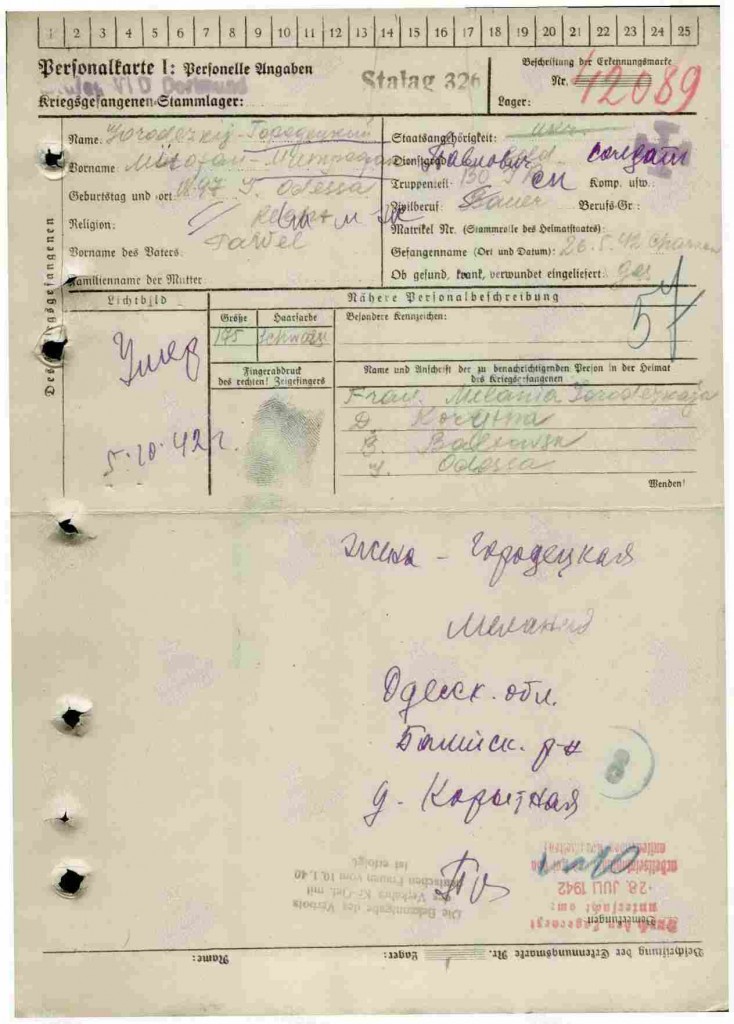 1 2 3 4 5 6 7 8 9 10 11 12 13 14 15 16 17 18 19 20 21 22 23 24 25
Personalkarte I: Personelle Angaben
Stalag VI D Dortmund
Kriegsgefangenen-Stammlager:
Stalag 326
Beschriftung der Erkennungsmarke
Nr. 42089
Lager:
Des Kriegsgefangenen
Name: Gorodezkij - Городецкий
Vorname: Mitrofan - Митрофан Павлович
Geburtstag und -ort: 1897 Odessa
Religion:
Vorname des Vaters: Pawel
Familienname der Mutter:
Staatsangehörigkeit:
Dienstgrad: Sold. солдат
Truppenteil: 130 Komp. usw.:
Zivilberuf: Bauer Berufs-Gr.:
Matrikel Nr. (Stammrolle des Heimatstaates):
Gefangennahme (Ort und Datum): 26.5.42
Ob gesund, krank, verwundet eingeliefert: ges
57
Lichtbild
Умер
5.10.42 г.
Nähere Personalbeschreibung
Größe Haarfarbe Besondere Kennzeichen:
175 schwarz
Fingerabdruck
des rechten! Zeigefingers
Name und Anschrift der zu benachrichtigenden Person in der Heimat
des Kriegsgefangenen
Frau. Melania Gorodezkaja
D.
G.
Odessa
Wenden!
Жена - Городецкая
Мелания
Одесск. обл.
р-н
д. Корытная
8
Die Bekanntgabe des Verbots
des Verkehrs Kr.-Gef. mit
deutschen Frauen vom 10.1.40
ist erfolgt
Bemerkungen:
untersucht am:
28. JULI 1942
Beschriftung der Erkennungsmarke Nr. Lager: Name: